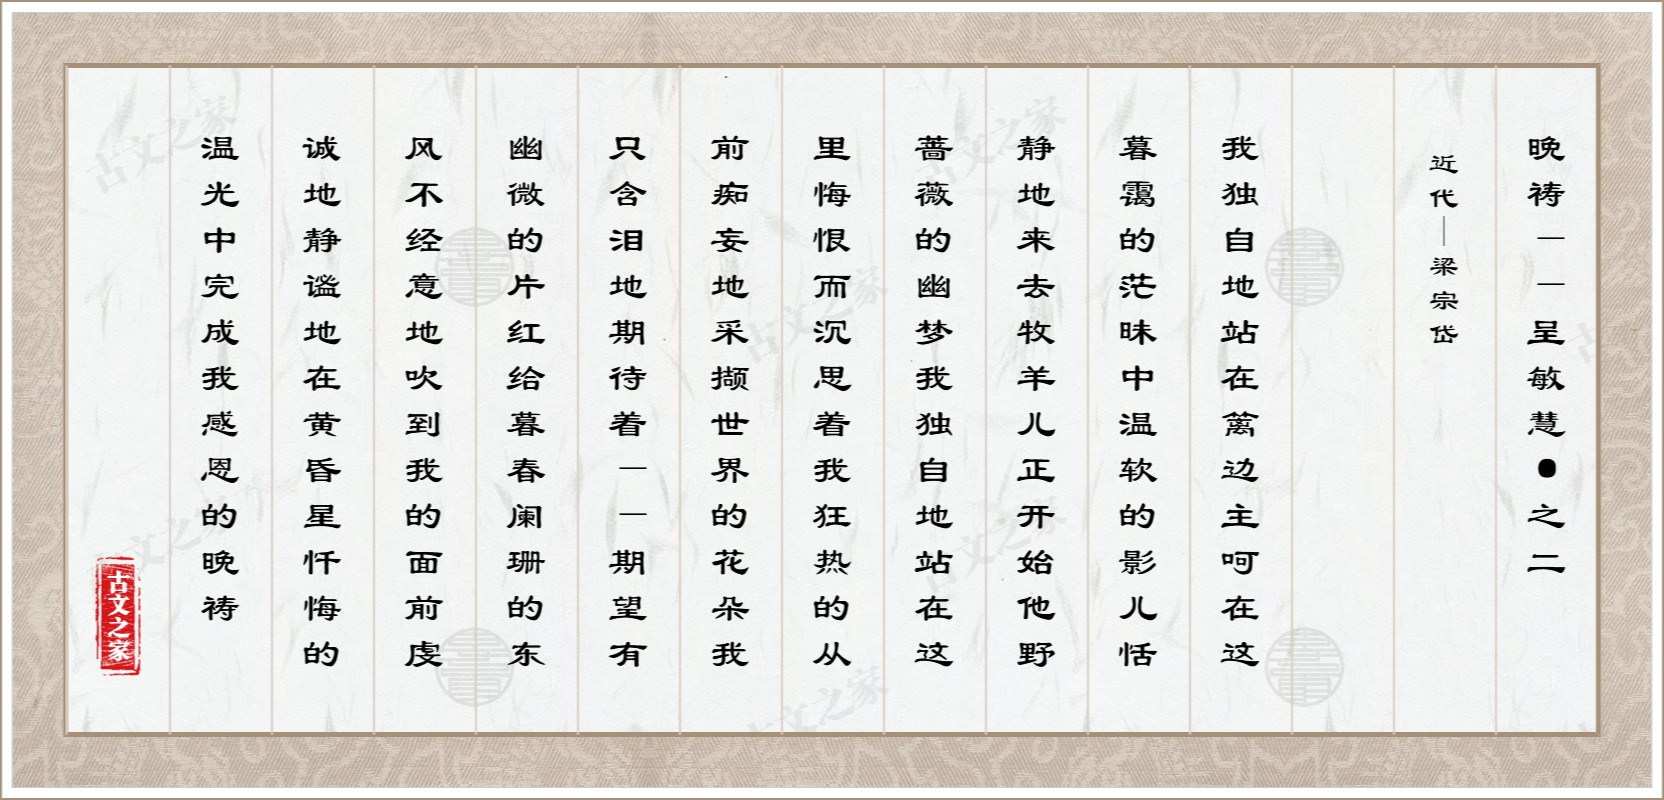 晚祷——呈敏慧●之二
近代—梁宗岱
我独自地站在篱边主呵在这
暮霭的茫昧中温软的影儿恬
静地来去牧羊儿正开始他野
蔷薇的幽梦我独自地站在这
里悔恨而沉思着我狂热的从
前痴妄地采撷世界的花朵我
只含泪地期待着——期望有
幽微的片红给暮春阑珊的东
风不经意地吹到我的面前虔
诚地静谧地在黄昏星忏悔的
温光中完成我感恩的晚祷
古文之家